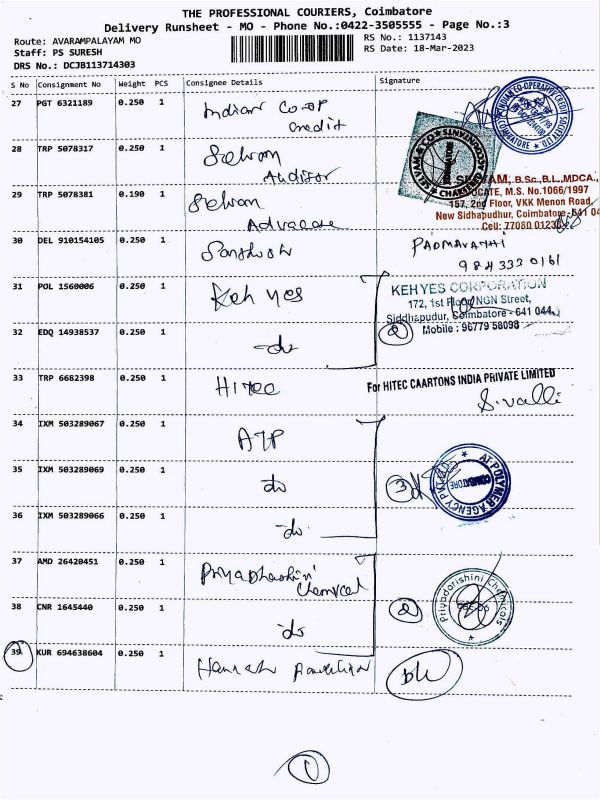 THE PROFESSIONAL COURIERS, Coimbatore
Delivery Runsheet - MO - Phone No.:0422-3505555 - Page No.:3
Route: AVARAMPALAYAM MO
Staff: PS SURESH
DRS No.: DCJB113714303
RS No.: 1137143
RS Date: 18-Mar-2023
S No Consignment No Weight PCS Consignee Details Signature
27 PGT 6321189 0.250 1 Indian Co-op
Credit
28 TRP 5078317 0.250 1 Selvam
Auditor
29 TRP 5078381 0.190 1 Selvam
Advocate
B.Sc.,B.L.,MDCA.
M.S. No.1066/1997
157, 2nd Floor, VKK Menon Road,
New Sidhapudhur, Coimbatore-641 04
Cell: 77080 01230
30 DEL 910154105 0.250 1 Santhosh
PADMAVATHI
984 333 0161
31 POL 1560006 0.250 1 Keh yes
KEHYES CORPORATION
172, 1st Floor, NGN Street,
Siddhapudur, Coimbatore - 641 044.
Mobile : 96779 58098
32 EDQ 14938537 0.250 1 -do-
2
33 TRP 6682398 0.250 1 Hitec
For HITEC CAARTONS INDIA PRIVATE LIMITED
S. Valli
34 IXM 503289067 0.250 1 ATP
35 IXM 503289069 0.250 1 do
3
AT POLYMER AGENCY PVT LTD
COIMBATORE
36 IXM 503289066 0.250 1 do
37 AMD 26420451 0.250 1 Priyadharshini
Chemical
38 CNR 1645440 0.250 1 do
2
Priyadarishini Chemicals
39 KUR 694638604 0.250 1
1